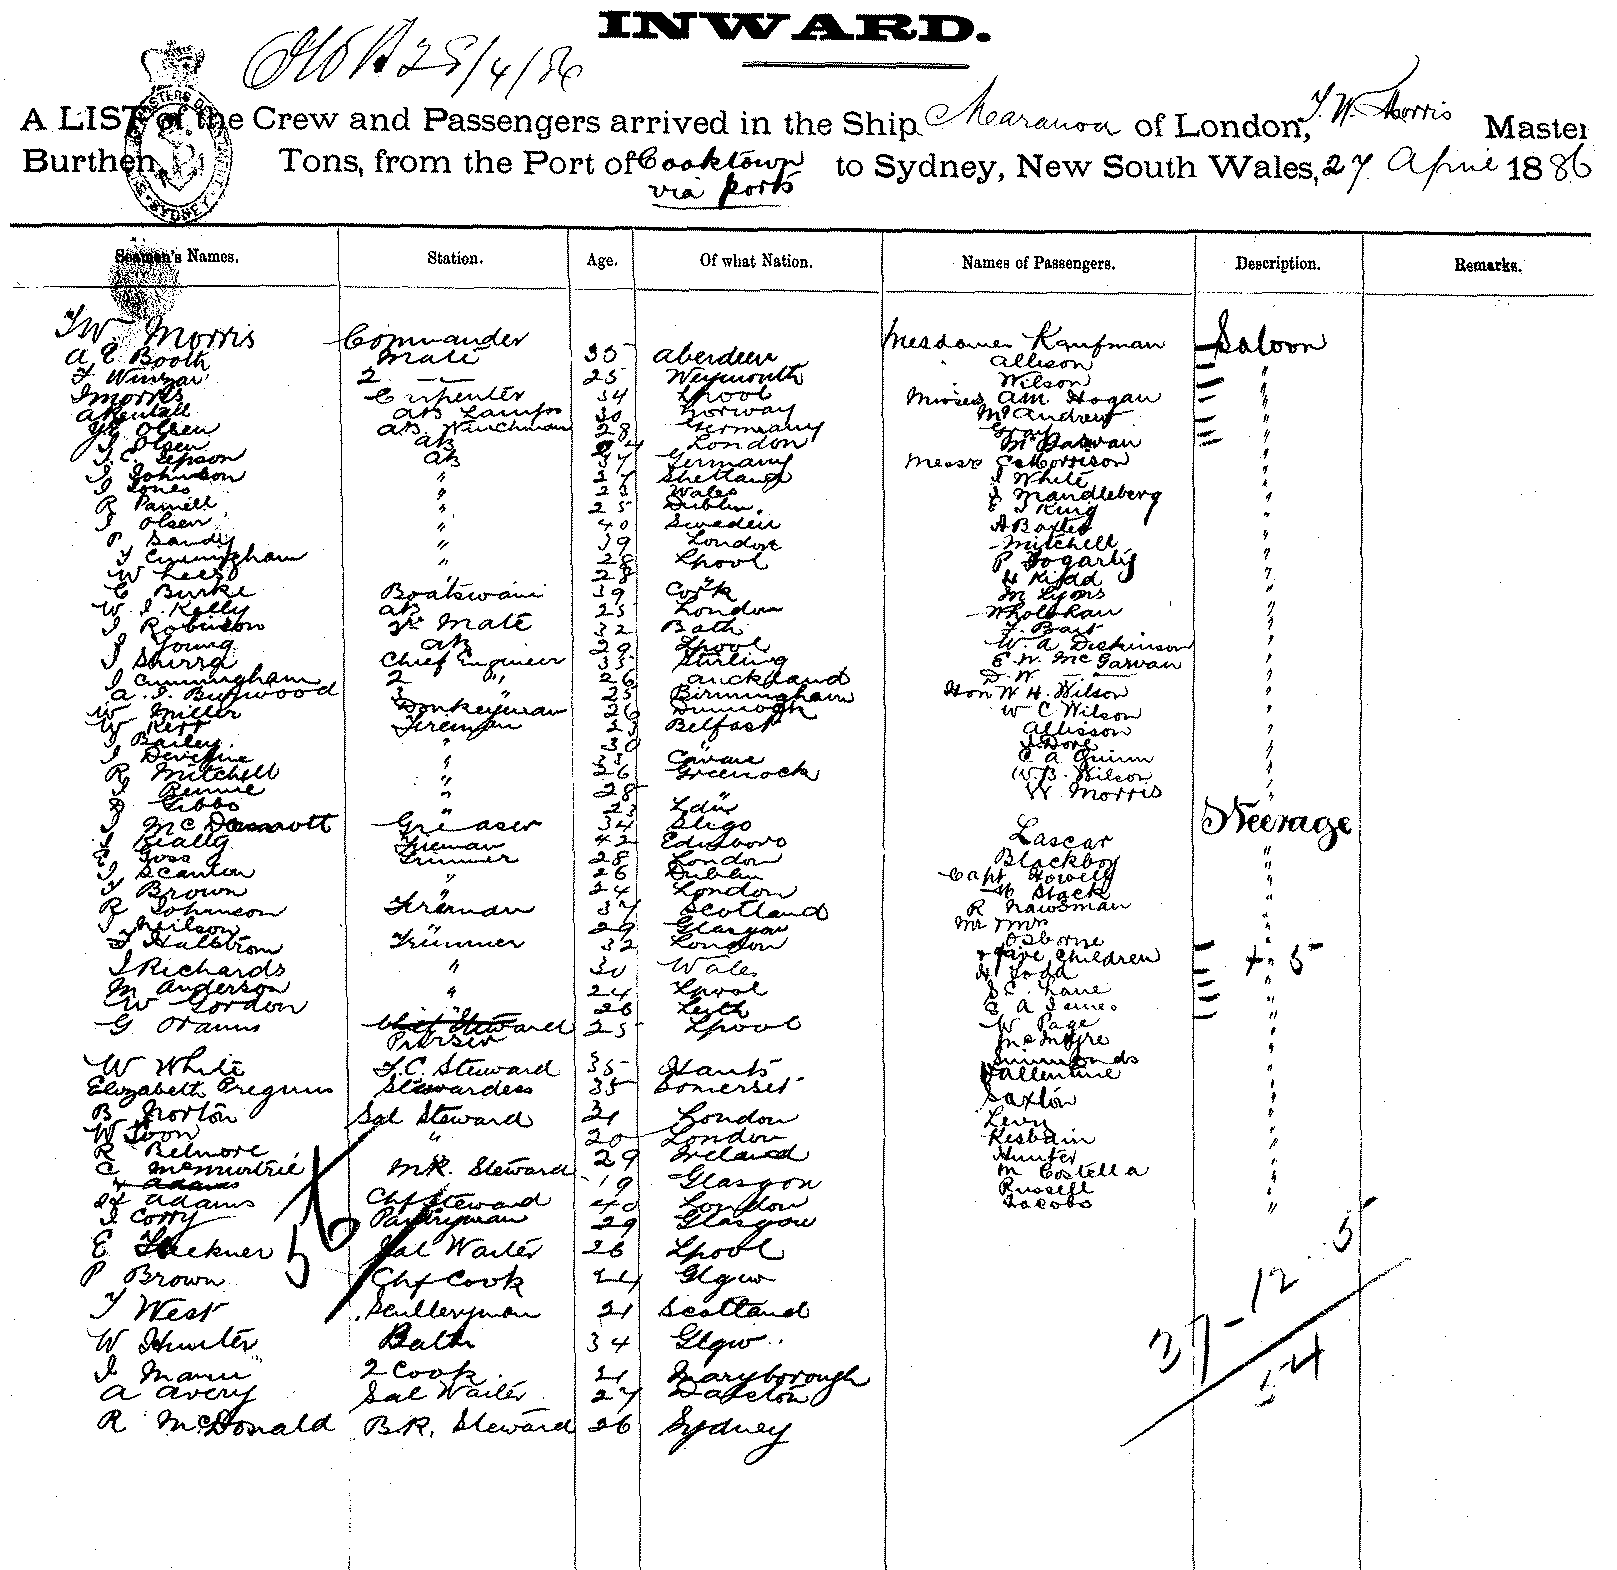 INWARD.
28/4/86
A LIST of the Crew and Passengers arrived in the Ship Maranoa of London, T. W. Morris Master
Burthen, Tons, from the Port of Cooktown to Sydney, New South Wales, 27 April 1886
via ports
SYDNEY
Seamen's Names. Station. Age. Of what Nation. Names of Passengers. Description. Remarks.
TW Morris Commander Mesdames Kaufman Saloon
A E Booth Mate 35 Aberdeen Allison "
T Winzar 2 — 25 Weymouth Wilson "
J Morris Carpenter 34 Lpool Misses AM Hogan "
A Kendall AB Lamps 30 Norway McAndrew "
Olsen AB. Winchman 28 Germany Gray "
J Olsen AB London McGarvan "
J. C. Jepson AB 37 Germany Messrs C Morrison "
J Johnson " 27 Shetland J White "
J Jones " 23 Wales J Mandleberg "
R Parnell " 25 Dublin. E J King "
J Olsen " 40 Sweden A Baxter "
P Sandy " 39 London Mitchell "
T Cunningham " 28 Lpool P Fogarty "
W Lees 28 " H Kidd "
E Burke Boatswain 39 Cork M Lyons "
W. J. Kelly AB 25 London "
J Robinson 2nd Mate 32 Bath "
J Young AB 29 Lpool W. A Dickinson "
J Shirra Chief Engineer 35 Stirling E. W. McGarvan "
J Cunningham 2 " 26 Auckland D. W — "
A. J. Burwood 3 " 25 Birmingham Hon W H. Wilson "
W Miller Donkeyman 26 W C Wilson "
W Kerr Fireman 23 Belfast Allisson "
J Bailey. " 30 " J Dore "
J Devine " 33 E A Quinn "
R Mitchell " 26 Greenock W. B. Wilson "
J Rennie " 28 W Morris "
J Gibbs " 23 Ldn
J McDermott Greaser 34 Sligo Lascar Steerage
J Reilly Fireman 42 Edinboro Blackboy "
E Goss Trimmer 28 London Capt Howell "
J Scanlon " 26 Dublin Slack "
T Brown " 24 London R Nawsman "
R Johnson Fireman 37 Scotland Mr Mrs "
J Neilson " 29 Glasgow Osborne "
T Halstrom Trimmer 32 London + five Children + " 5
J Richards " 30 Wales H Todd "
M Anderson " 24 Lpool J C. Lane "
W Gordon " 26 Leith E A James "
G Orams Chief Steward 25 Lpool W Page "
Purser McIntyre "
W White F.C. Steward 35 Hants Simmonds "
Elizabeth Pregnus Stewardess 35 Somerset Vallentine "
B Norton Sal Steward 21 London Saxton "
W Toon " 20 London Levy "
R Belmore 29 Ireland Hunter "
C McMurtrie MR. Steward 19 Glasgow M Costella "
Adams Russell "
H Adams Chf Steward 40 London Jacobs "
J Corry Pantryman 29 Glasgow
E Sal Waiter 26 Lpool 5
P Brown Chf Cook 24 Glgw 12
T West Sculleryman 21 Scotland 37
W Hunter Bath 34 Glgw 54
J Mann 2 Cook 21 Maryborough
A Avery Sal Waiter 27 Dalston
R McDonald B.R. Steward 26 Sydney
56